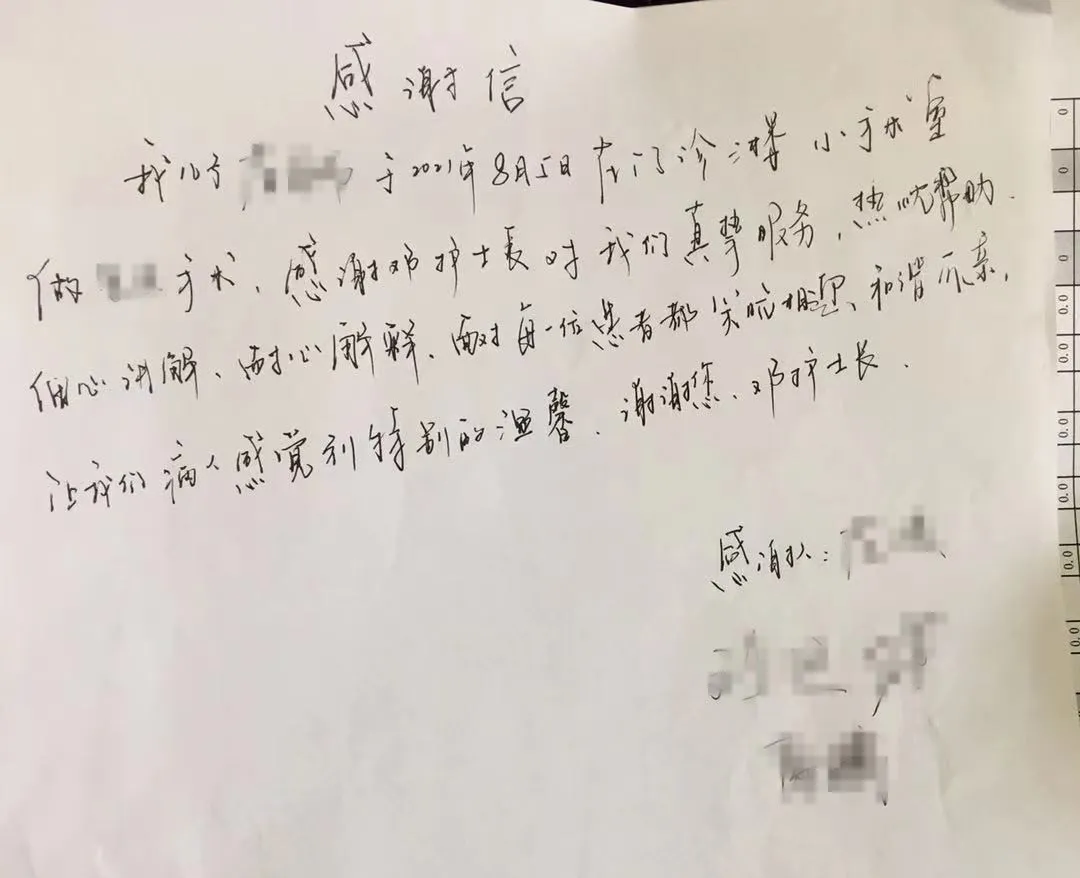 感谢信
我儿子 于2021年8月5日在门诊二楼小手术室
做 手术、感谢邓护士长对我们真挚服务,热忱帮助.
细心讲解、耐心解释、面对每一位患者都笑脸相迎、和谐可亲,
让我们病人感觉到特别的温馨.谢谢您、邓护士长.
感谢人:
0.0
0.0
0.0
0.0
0.0
0.0